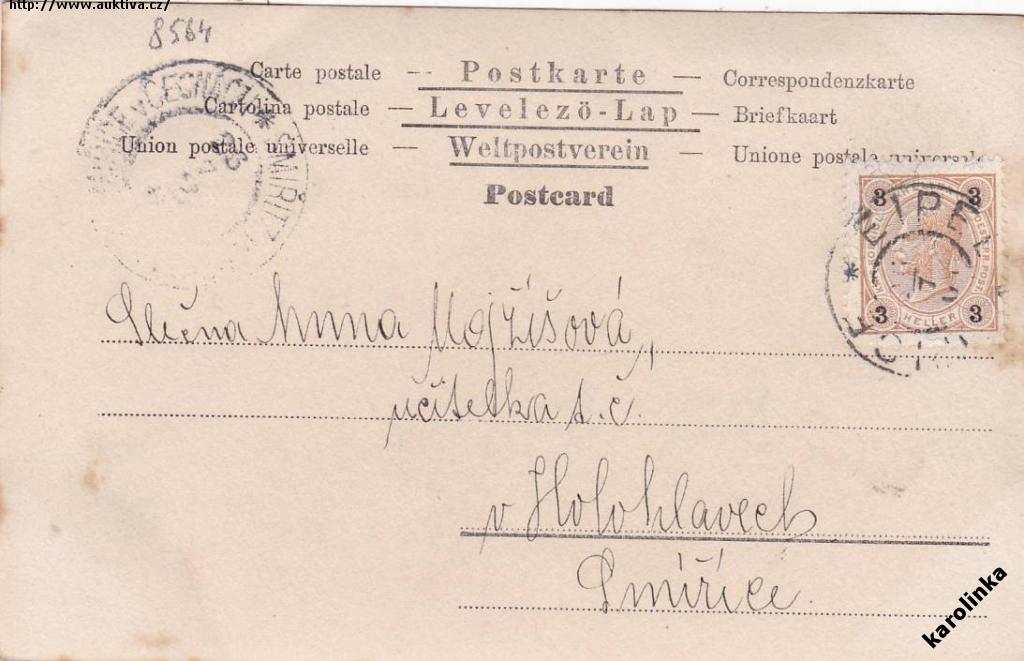 http://www.auktiva.cz/
8564
Carte postale — Postkarte — Correspondenzkarte
Cartolina postale — Levelező-Lap — Briefkaart
Union postale universelle — Weltpostverein — Unione postale universale
Postcard
SMIŘITZ
3 3
EIPEL
3 HELLER 3
Slečna Anna Mojžíšová,
učitelka t. č.
v Holohlavech
Smířice.
karolinka